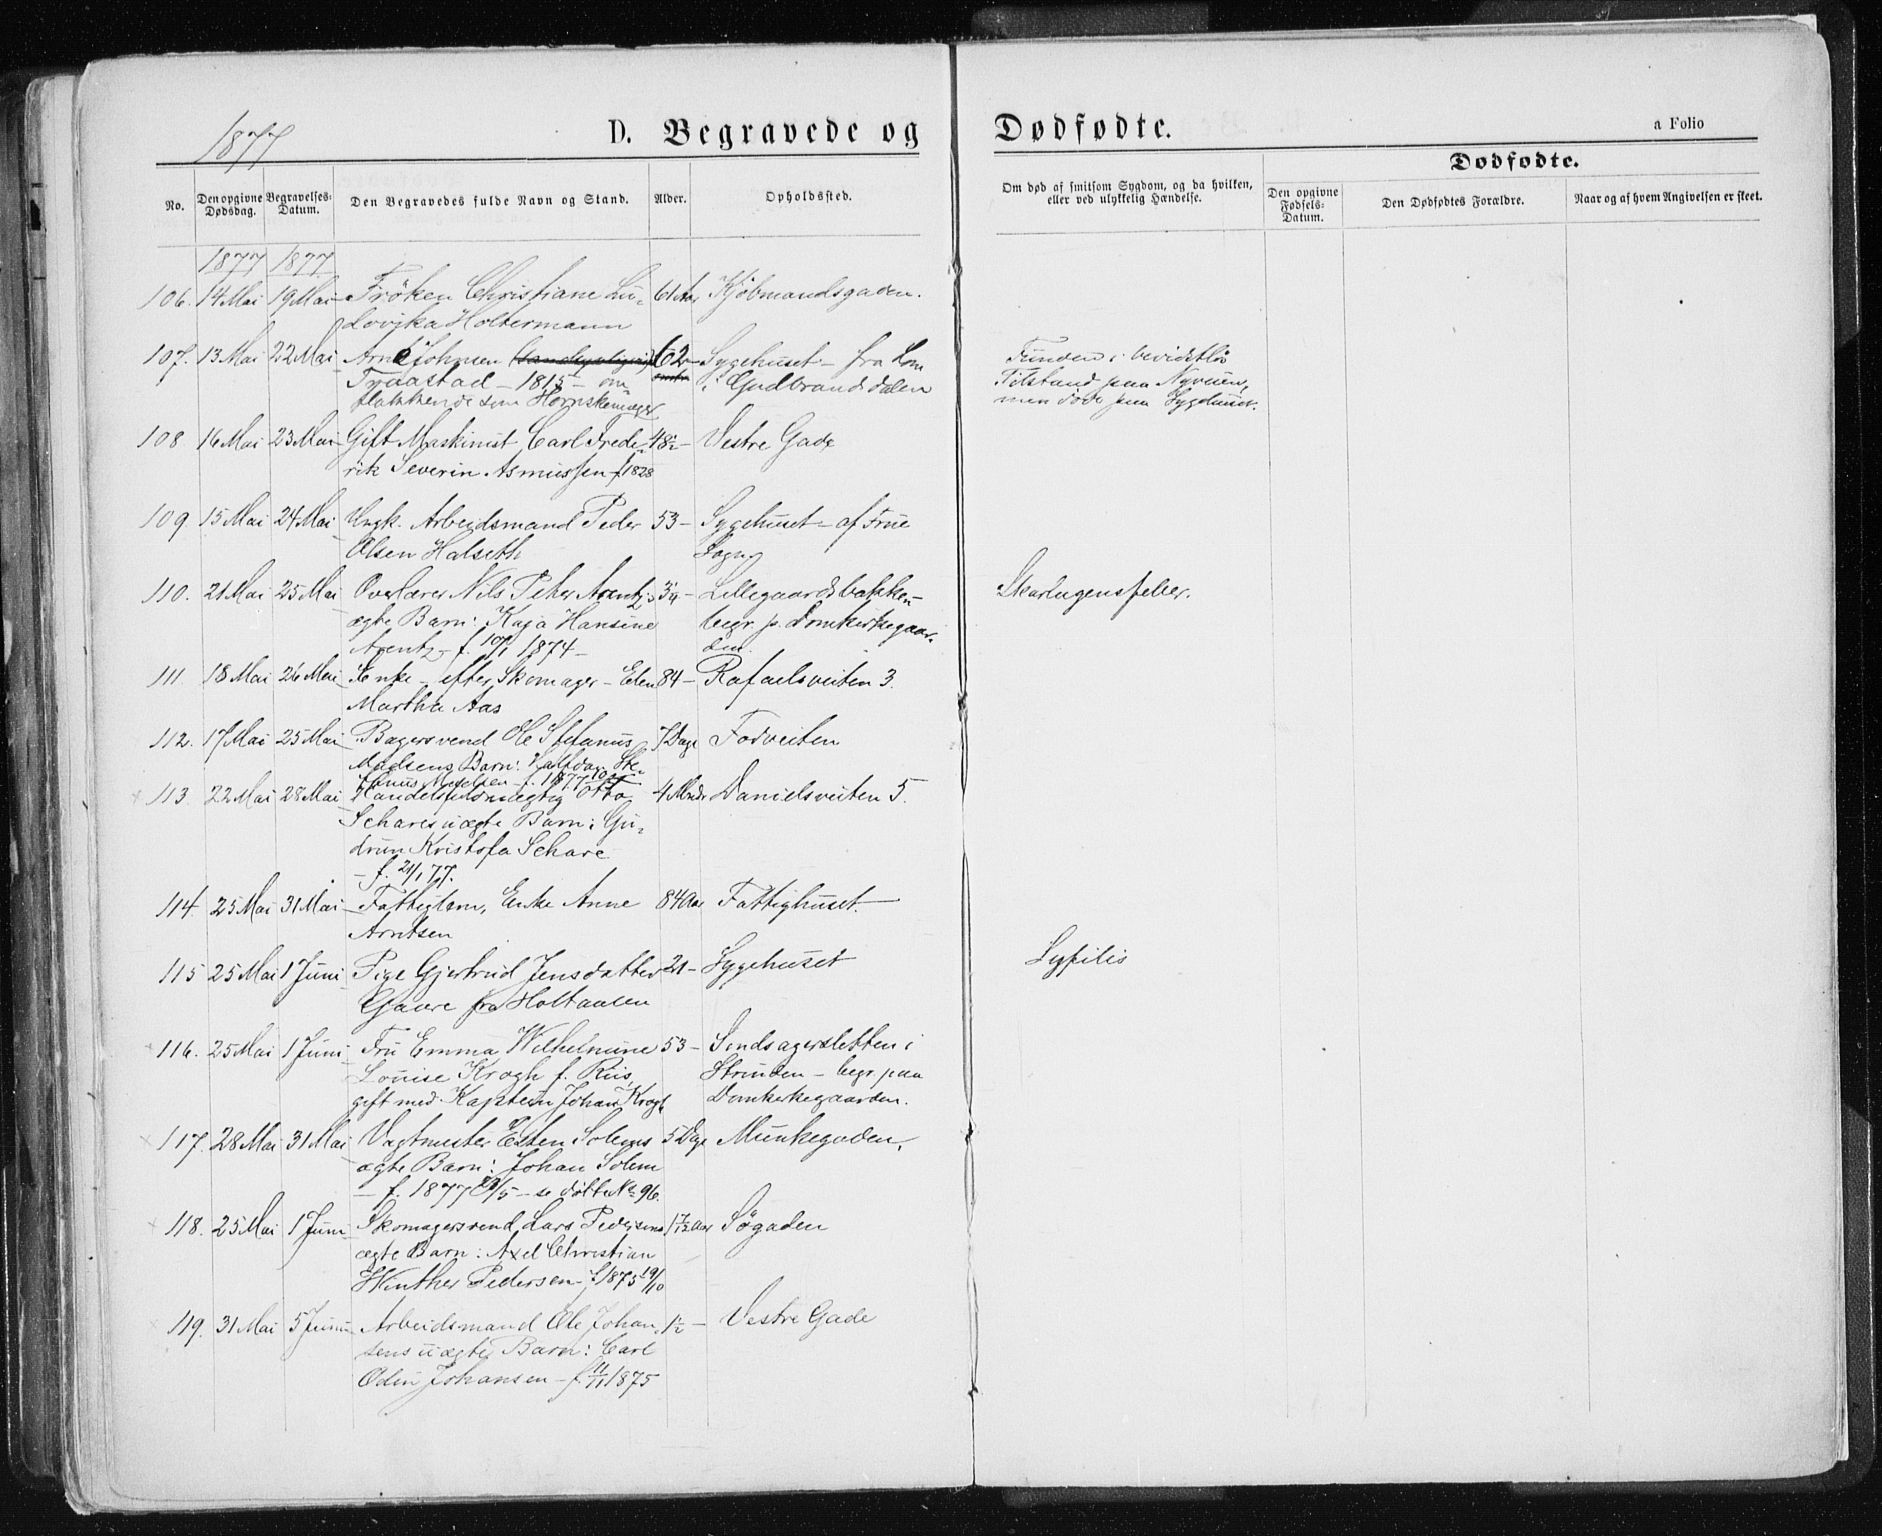 1877
D. Begravede og Dødfødte.
a Folio
No.
Den opgivne Dødsdag.
Begravelses-Datum.
Den Begravedes fulde Navn og Stand.
Alder.
Opholdssted.
Om død af smitsom Sygdom, og da hvilken,
eller ved ulykkelig Hændelse.
Dødfødte.
Den opgivne Fødsels-Datum.
Den Dødfødtes Forældre.
Naar og af hvem Angivelsen er skeet.
1877 1877
106. 14 Mai 19 Mai Frøken Christiane Lu- 61 Aar Kjøbmandsgaden.
dovika Holtermann
107. 13 Mai 22 Mai Arne Johnsen 62 Sygehuset - fra Lom Funden i bevidstløs
Fraastad - 1815 - om i Gudbrandsdalen Tilstand paa Nyveien,
flakkende som Hornskemager men døde paa Sygehuset.
108. 16 Mai 23 Mai Gift Maskinist Carl Frede- 48½ - Vestre Gade
rik Severin Asmussen f 1828
109. 15 Mai 24 Mai Ungk. Arbeidsmand Peder 53 - Sygehuset - af Frue
Olsen Halseth Sogn
110. 21 Mai 25 Mai Overlærer Nils Peter Arentz's 3¼ - Lillegaardsbakken - Skarlagensfeber.
ægte Barn: Kaja Hansine begr. p. Domkirkegaar-
Arentz - f. 10/1 1874 - den.
111. 18 Mai 26 Mai Enke efter Skomager - Elen 84 - Rafaelsveiten 3.
Martha Aas
112. 17 Mai 25 Mai Bagersvend Ole Stefanus 7 Dage Fodveiten
Madsens Barn: Halfdan Ste-
fanus Madsen f. 1877 10/5
113. 22 Mai 28 Mai Handelsfuldmægtig Otto 4 Mndr Danielsveiten 5.
Schares uægte Barn: Gu-
drun Kristofa Schare
- f. 21/1 77.
114. 25 Mai 31 Mai Fattiglem, Enke Anne 84 Aar Fattighuset.
Arntsen
115 25 Mai 1 Juni Pige Gjertrud Jensdatter 21 - Sygehuset Syfilis
Gaare fra Holtaalen
116. 25 Mai 1 Juni Fru Emma Wilhelmine 53 - Sindsagersletten i
Louise Krogh f. Riis, Strinden - begr. paa
gift med Kaptein Johan Krogh Domkirkegaarden.
117. 28 Mai 31 Mai Vagtmester Esten Solems 5 Dage Munkegaden.
ægte Barn: Johan Solem
- f. 1877 23/5 - se døbte No 96.
118. 25 Mai 1 Juni Skomagersvend Lars Pedersens 1 7/12 Aar Søgaden
ægte Barn: Axel Christian
Winther Pedersen - f. 1875 19/10
119. 31 Mai 5 Juni Arbeidsmand Ole Johan- 1½ - Vestre Gade
sens uægte Barn: Carl
Odin Johansen - f. 11/11 1875